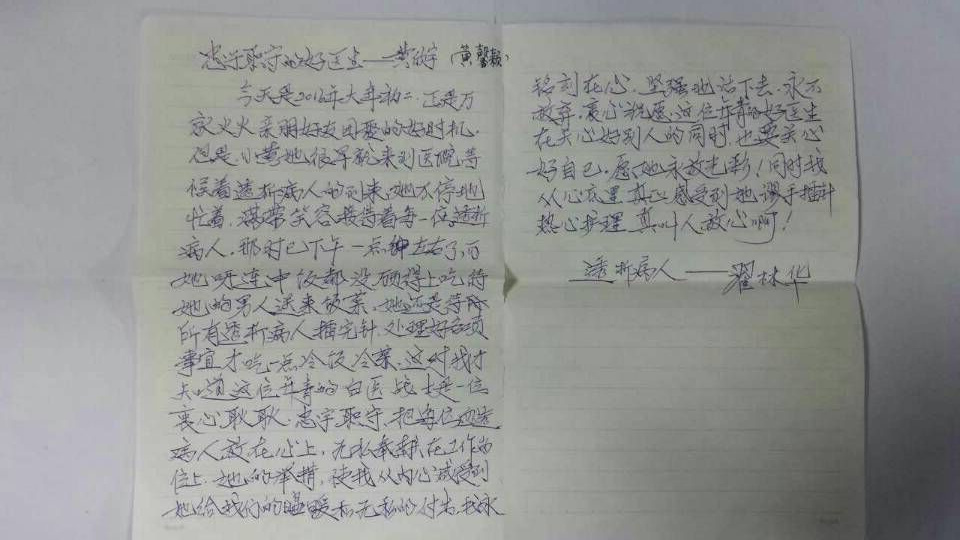 忠于职守的好医生——黄 (黄馨毅)
今天是2012年大年初二.正是万
家火火亲朋好友团聚的好时机.
但是.小黄她很早就来到医院等
候着透析病人的到来.她不停地
忙着.满带笑容接待着每一位透析
病人.那时已下午一点钟左右了,可
她呀连中饭都没顾得上吃.待
她的男人送来饭菜.她还是等待
所有透析病人插完针.处理好各项
事宜才吃一点冷饭冷菜.这时我才
知道这位年青的白医战士是一位
衷心耿耿.忠守职守.把每位透
病人放在心上.无私奉献在工作岗
位上.她的举措.使我从内心感受到
她给我们的温暖和无私的付出.我永
铭刻在心.坚强地活下去.永不
放弃.衷心祝愿.这位年青的好医生
在关心好别人的同时.也要关心
好自己.愿她永放光彩!同时我
从心底里真正感受到她谬手插针
热心护理真叫人放心啊!
透析病人——翟林华